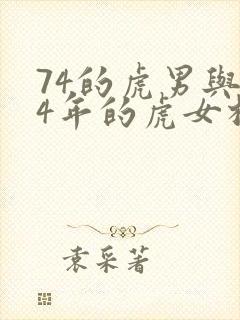 74的虎男與
4年的虎女
袁采著